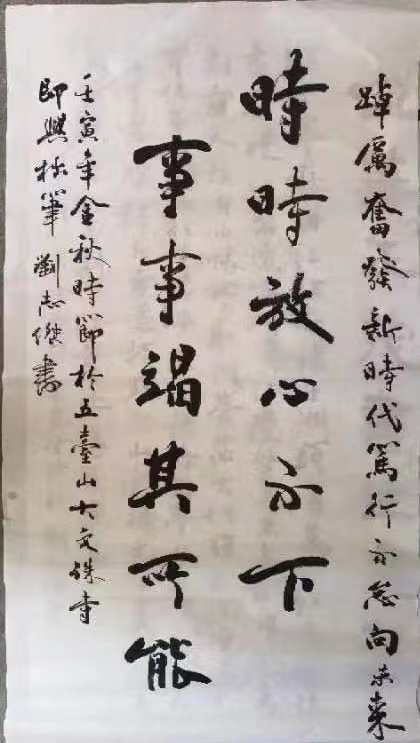 踔厲奮發新時代篤行不怠向未来
時時放心不下
事事竭其所能
壬寅年金秋時節於五臺山大文殊寺
即興揮筆劉志傑書